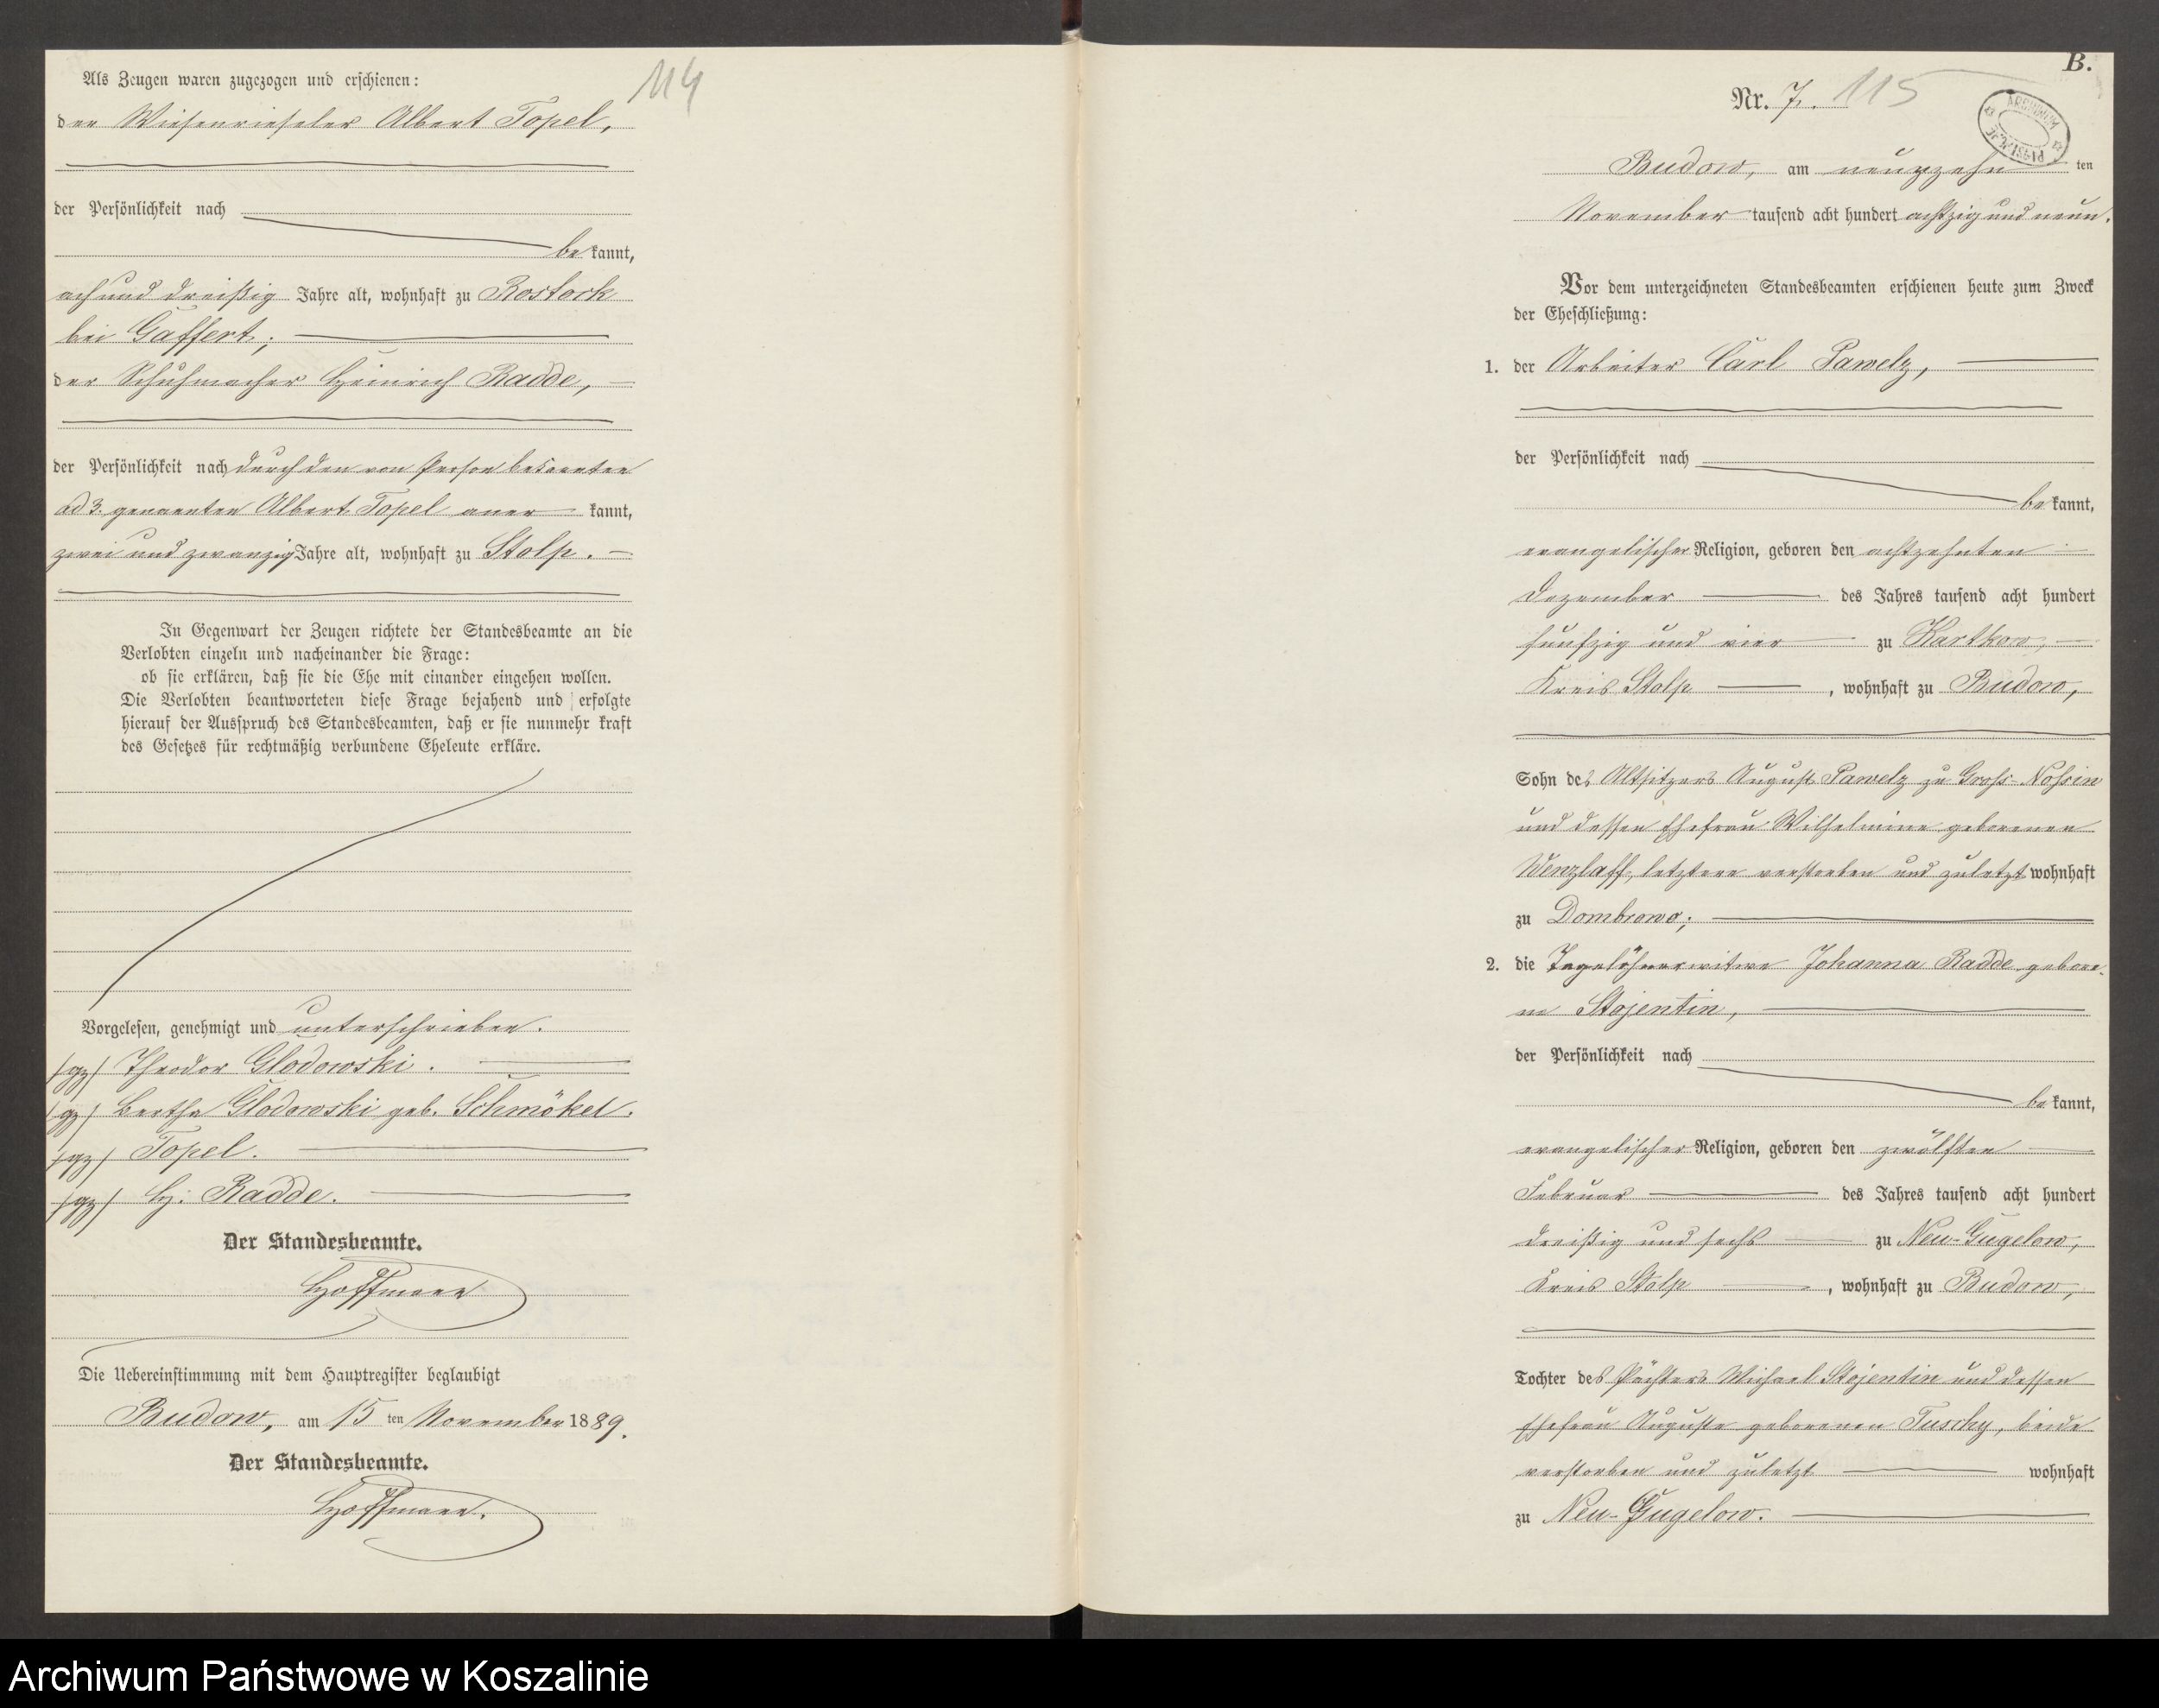 Als Zeugen waren zugezogen und erschienen:
114
der Wiesenrieseler Albert Topel,
der Persönlichkeit nach
be kannt,
acht und dreißig Jahre alt, wohnhaft zu Rostock
bei Gaffert;
der Schuhmacher Heinrich Radde,
der Persönlichkeit nach durch den von Person bekannten
ad 3. genannten Albert Topel aner kannt,
zwei und zwanzig Jahre alt, wohnhaft zu Stolp.
In Gegenwart der Zeugen richtete der Standesbeamte an die
Verlobten einzeln und nacheinander die Frage:
ob sie erklären, daß sie die Ehe mit einander eingehen wollen.
Die Verlobten beantworteten diese Frage bejahend und erfolgte
hierauf der Ausspruch des Standesbeamten, daß er sie nunmehr kraft
des Gesetzes für rechtmäßig verbundene Eheleute erkläre.
Vorgelesen, genehmigt und unterschrieben.
/gz/ Theodor Glodowski.
/gz/ Bertha Glodowski geb. Schmökel.
/gz/ Topel.
/gz/ H. Radde.
Der Standesbeamte.
Hoffmann
Die Uebereinstimmung mit dem Hauptregister beglaubigt
Budow, am 15 ten November 1889.
Der Standesbeamte.
Hoffmann.
B.
Nr. 7. 115
ARCHIWUM
Budow, am neunzehn ten
November tausend acht hundert achtzig und neun.
Vor dem unterzeichneten Standesbeamten erschienen heute zum Zweck
der Eheschließung:
1. der Arbeiter Carl Pawelz,
der Persönlichkeit nach
be kannt,
evangelischer Religion, geboren den achtzehnten
Dezember des Jahres tausend acht hundert
fünfzig und vier zu Kartkow,
Kreis Stolp, wohnhaft zu Budow,
Sohn des Altsitzers August Pawelz zu Groß-Nossin
und dessen Ehefrau Wilhelmine geborenen
Wenzlaff, letztere verstorben und zuletzt wohnhaft
zu Dombrowo;
2. die Tagelöhnerwitwe Johanna Radde gebore-
ne Stojentin,
der Persönlichkeit nach
be kannt,
evangelischer Religion, geboren den zwölften
Februar des Jahres tausend acht hundert
dreißig und sechs zu Neu-Gugelow,
Kreis Stolp, wohnhaft zu Budow,
Tochter des Pächters Michael Stojentin und dessen
Ehefrau Auguste geborenen Tuschy, beide
verstorben und zuletzt wohnhaft
zu Neu-Gugelow.
Archiwum Państwowe w Koszalinie